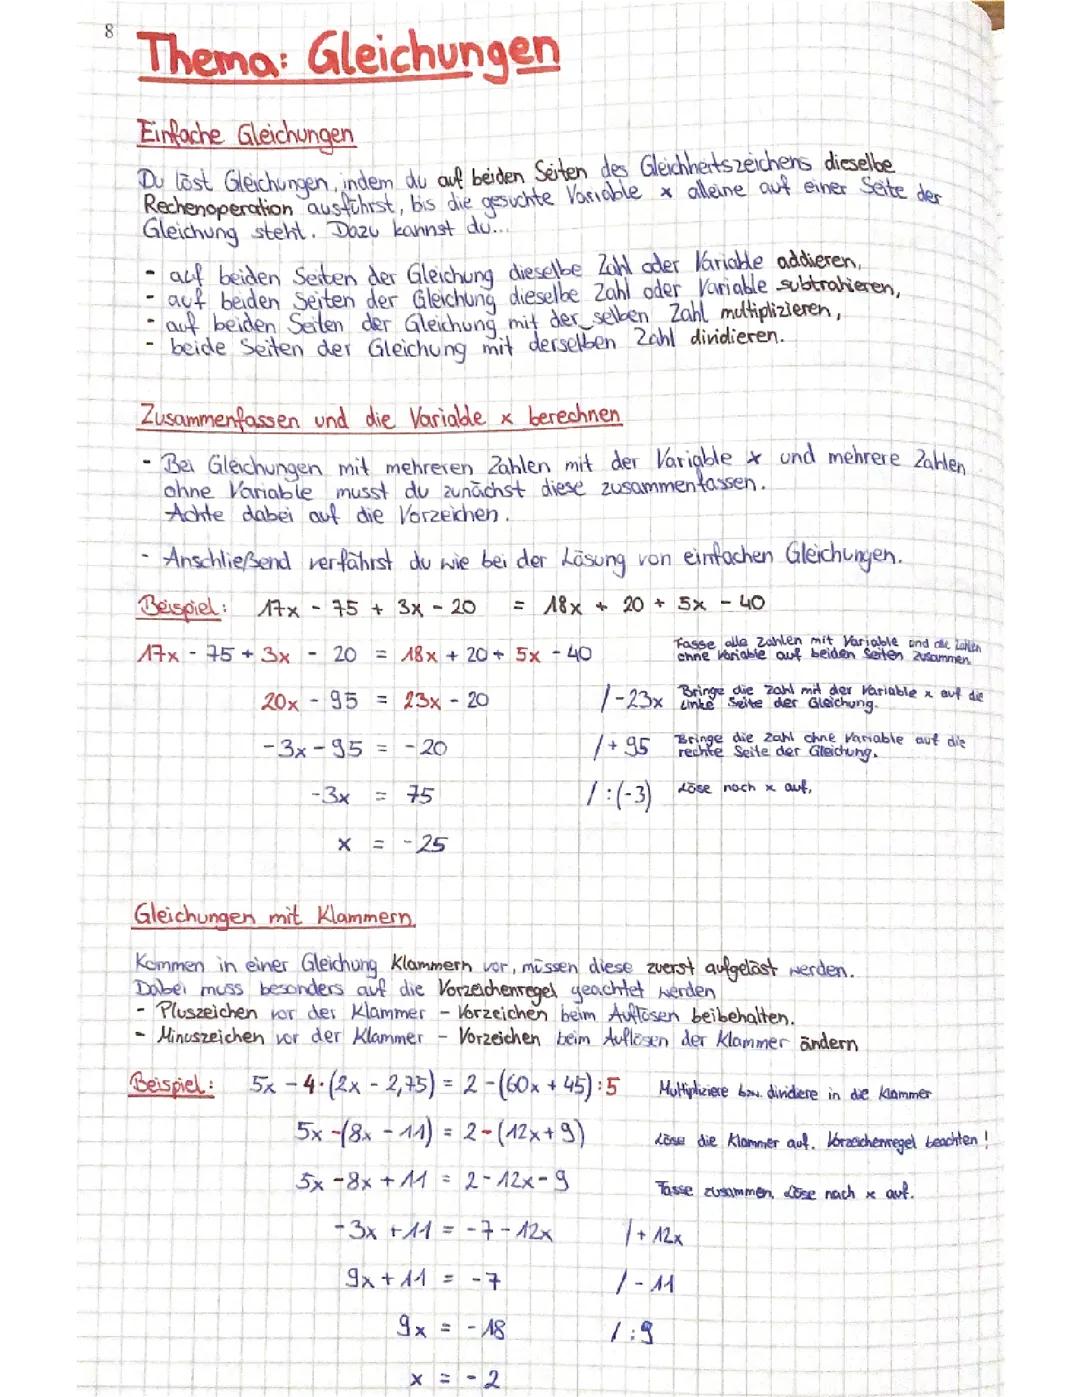 8
Thema: Gleichungen
Einfache Gleichungen
Du löst Gleichungen, indem du auf beiden Seiten des Gleichheitszeichens dieselbe
Rechenoperation ausführst, bis die gesuchte Variable x alleine auf einer Seite der
Gleichung steht. Dazu kannst du...
- auf beiden Seiten der Gleichung dieselbe Zahl oder Variable addieren,
- auf beiden Seiten der Gleichung dieselbe Zahl oder Variable subtrahieren,
- auf beiden Seiten der Gleichung mit der selben Zahl multiplizieren,
- beide Seiten der Gleichung mit derselben Zahl dividieren.
Zusammenfassen und die Variable x berechnen
- Bei Gleichungen mit mehreren Zahlen mit der Variable x und mehrere Zahlen
ohne Variable musst du zunächst diese zusammenfassen.
Achte dabei auf die Vorzeichen.
- Anschließend verfährst du wie bei der Lösung von einfachen Gleichungen.
Beispiel: 17x - 75 + 3x - 20 = 18x + 20 + 5x - 40
17x - 75 + 3x - 20 = 18x + 20 + 5x - 40 Fasse alle Zahlen mit Variable und die Zahlen
ohne Variable auf beiden Seiten zusammen.
20x - 95 = 23x - 20 /-23x Bringe die Zahl mit der Variable x auf die
Linke Seite der Gleichung.
-3x - 95 = -20 /+95 Bringe die Zahl ohne Variable auf die
rechte Seite der Gleichung.
-3x = 75 /:(-3) Löse nach x auf.
x = -25
Gleichungen mit Klammern
Kommen in einer Gleichung Klammern vor, müssen diese zuerst aufgelöst werden.
Dabei muss besonders auf die Vorzeichenregel geachtet werden
- Pluszeichen vor der Klammer - Vorzeichen beim Auflösen beibehalten.
- Minuszeichen vor der Klammer - Vorzeichen beim Auflösen der Klammer ändern
Beispiel: 5x - 4·(2x - 2,75) = 2 - (60x + 45):5 Multipliziere bzw. dividiere in die Klammer
5x -(8x - 11) = 2 - (12x + 9) Löse die Klammer auf. Vorzeichenregel beachten!
5x - 8x + 11 = 2 - 12x - 9 Fasse zusammen, Löse nach x auf.
-3x + 11 = -7 - 12x /+ 12x
9x + 11 = -7 /- 11
9x = -18 /:9
x = -2